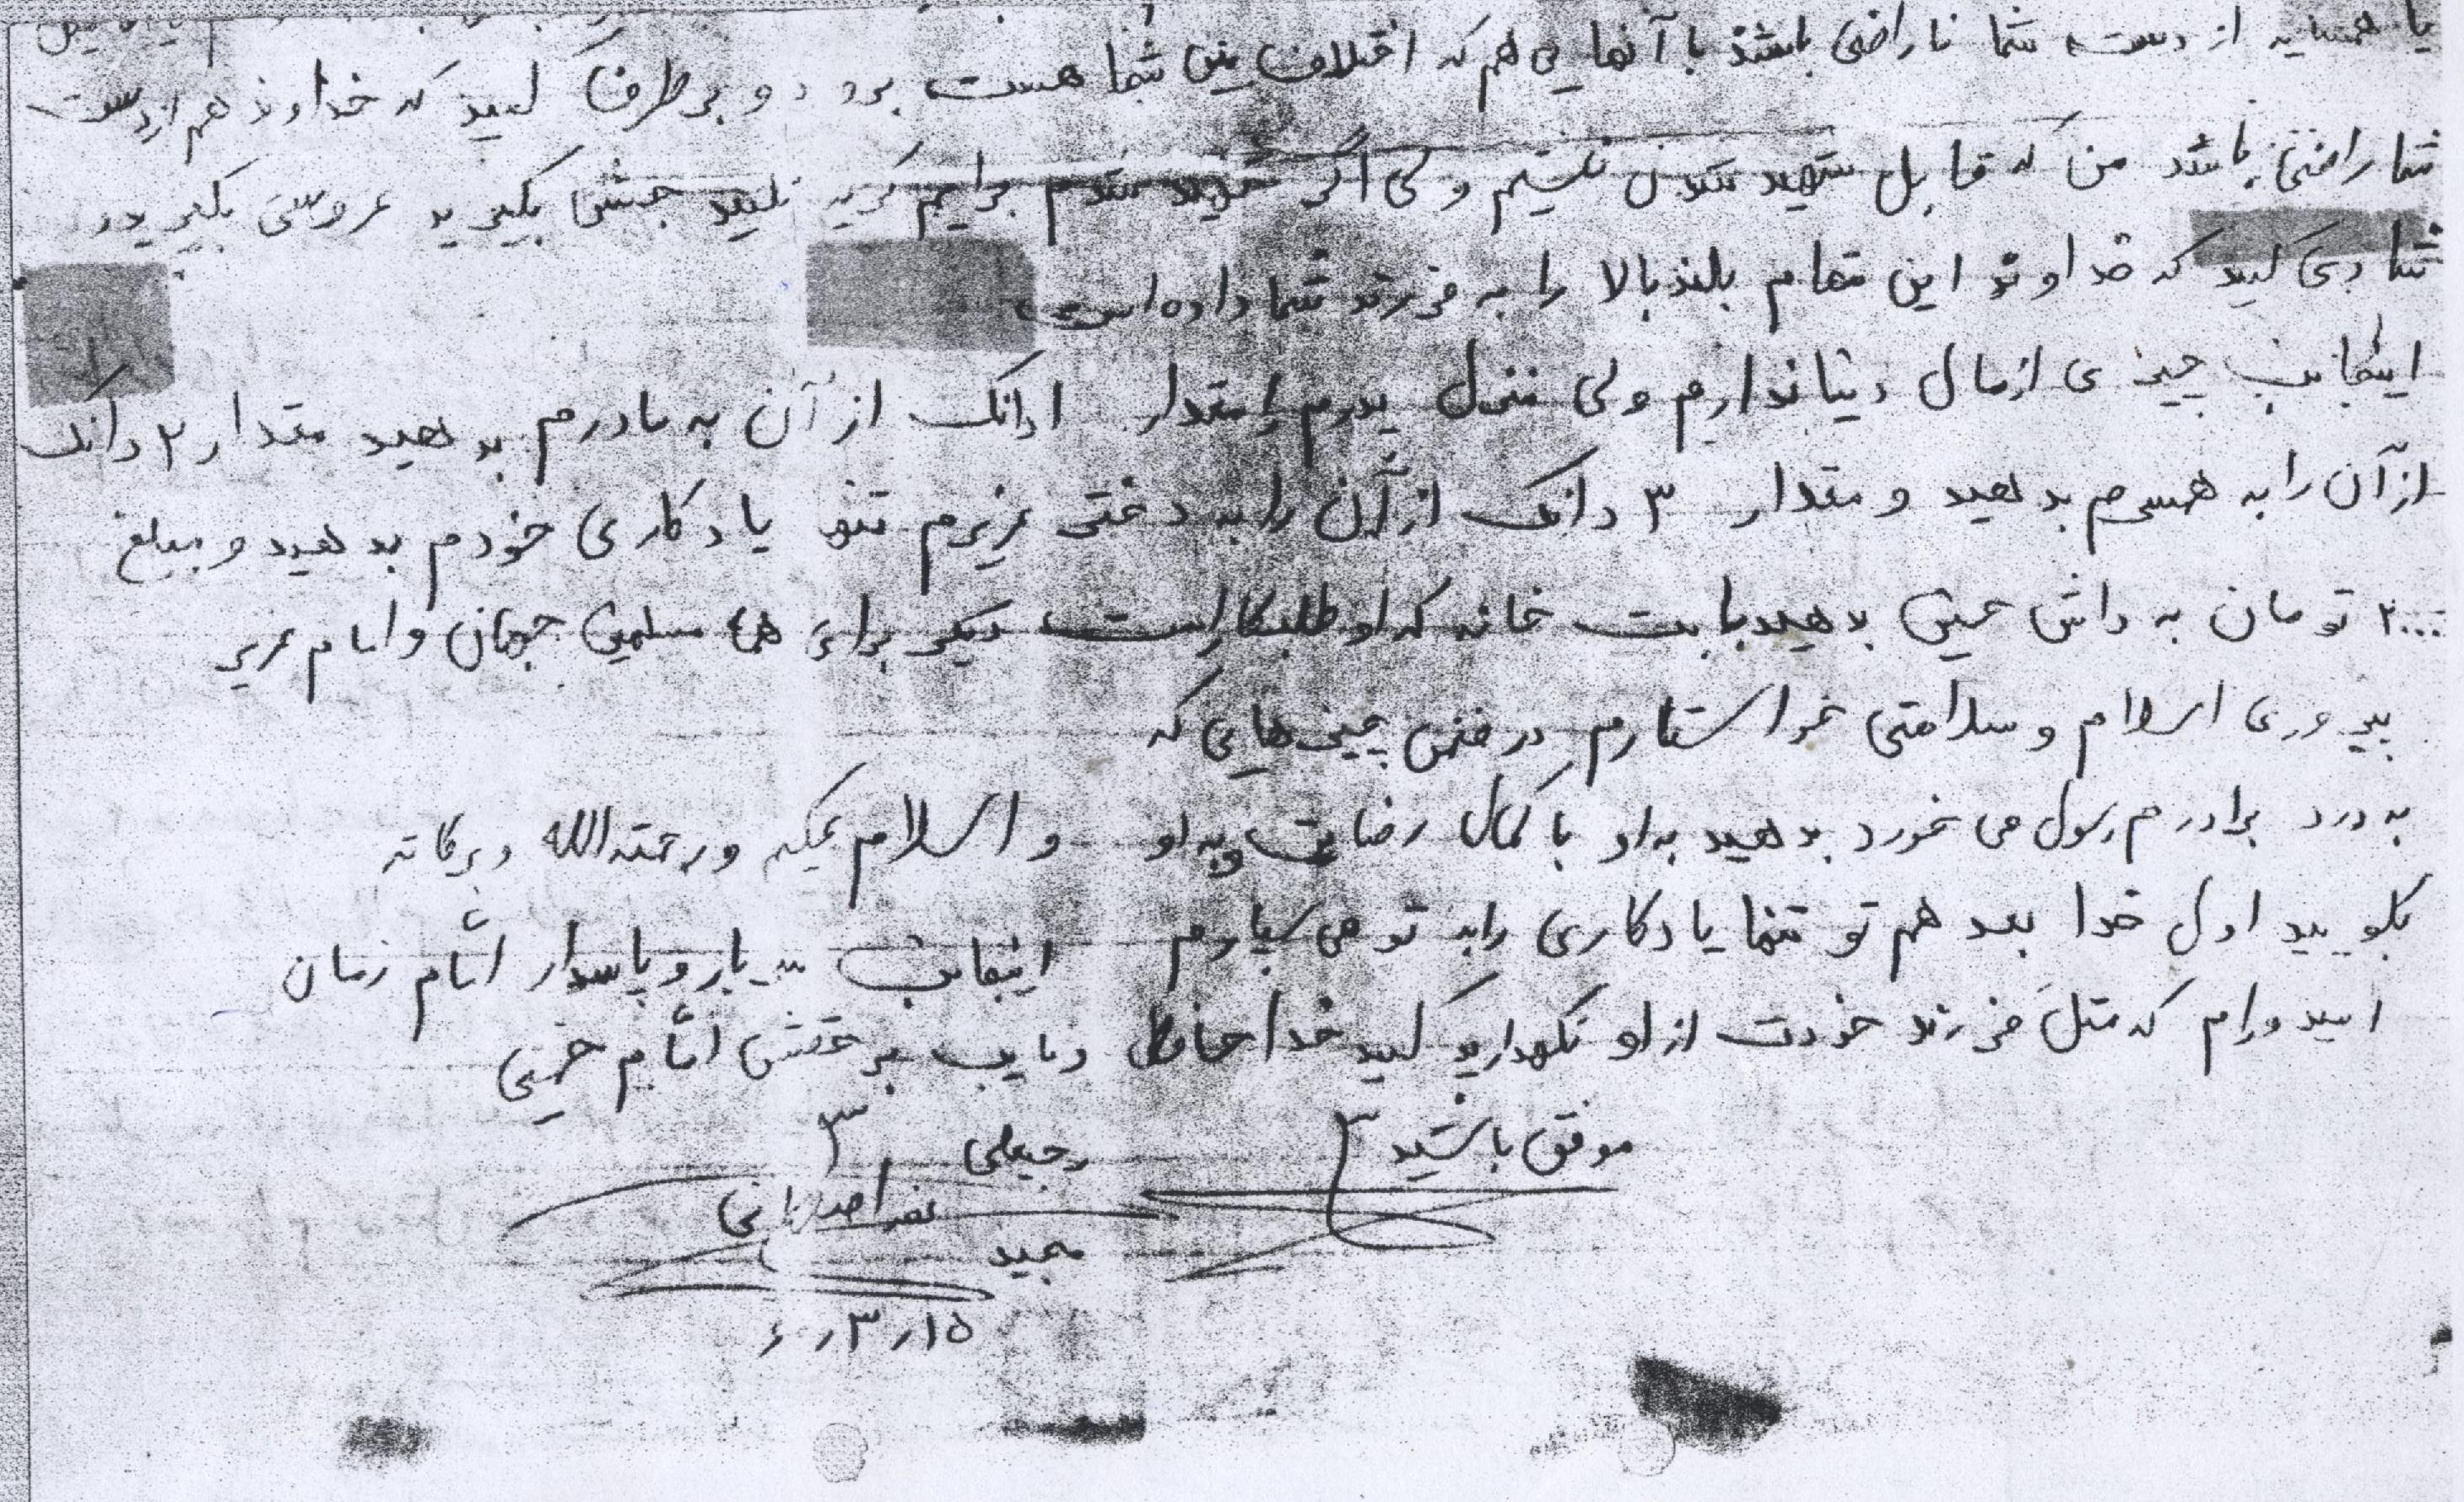 یا همسایه از دست شما ناراضی باشد با آنهایی هم که اختلاف بین شما هست بروید و برطرف کنید که خداوند هم از دست
شما راضی باشد من که قابل شهید شدن نیستم ولی اگر شهید شدم برایم گریه نکنید جشن بگیرید عروسی بگیرید و
شادی کنید که خداوند این مقام بلند بالا را به فرزند شما داده است
اینجانب چیزی از مال دنیا ندارم ولی منزل پدرم را مقدار ۱ دانگ از آن به مادرم بدهید مقدار ۲ دانگ
از آن را به همسرم بدهید و مقدار ۳ دانگ از آن را به دختر عزیزم تنها یادگاری خودم بدهید و مبلغ
۲۰۰۰ تومان به داش حسین بدهید بابت خانه که او طلبکار است دیگر برای همه مسلمین جهان و امام عزیز
پیروزی اسلام و سلامتی خواستارم در ضمن چیزهایی که
به درد برادرم رسول می خورد بدهید به او با کمال رضایت و به او
بگویید اول خدا بعد هم تو تنها یادگاری را به تو می سپارم
امیدوارم که مثل فرزند خودت از او نگهداری کنید خداحافظ
موفق باشید
و السلام علیکم و رحمته الله و برکاته
اینجانب سرباز و پاسدار امام زمان
و نایب بر حقش امام خمینی
رجبعلی
مجید
۱۵ر۳ر